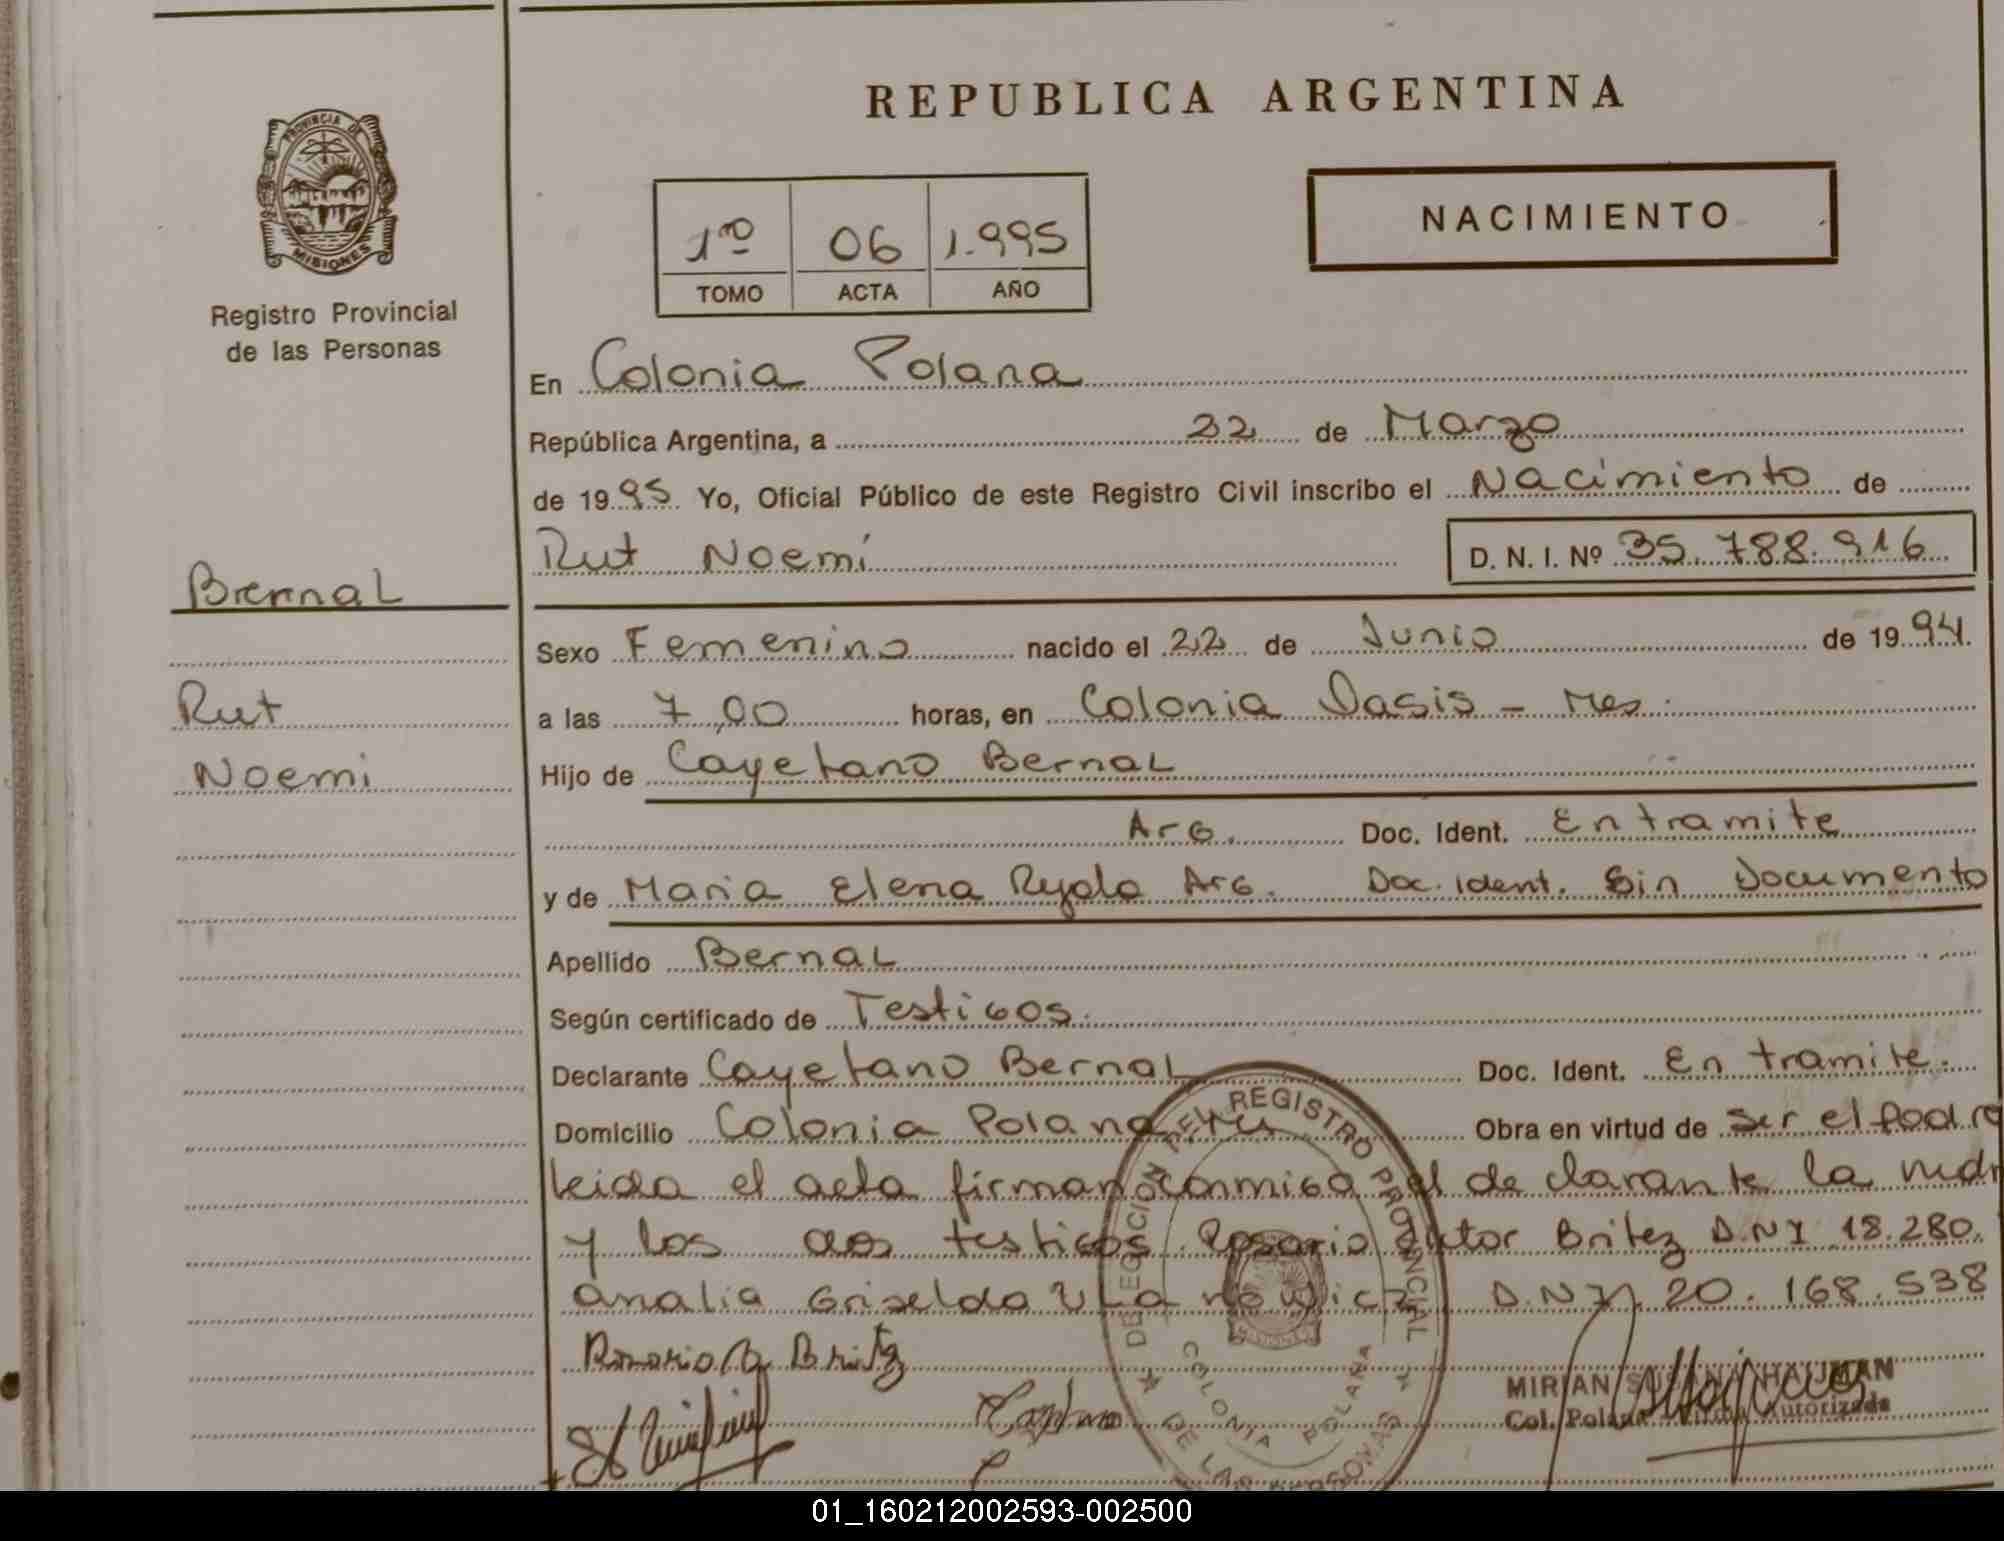 REPUBLICA ARGENTINA
PROVINCIA DE
MISIONES
Registro Provincial
de las Personas
NACIMIENTO
1º 06 1.995
TOMO ACTA AÑO
En Colonia Polana
República Argentina, a 22 de Marzo
de 1995 Yo, Oficial Público de este Registro Civil inscribo el Nacimiento de
Rut Noemí D. N. I. Nº 35.788.916
Bernal
Rut
Noemi
Sexo Femenino nacido el 22 de Junio de 1994.
a las 7,00 horas, en Colonia Oasis - Mes.
Hijo de Cayetano Bernal
Arg. Doc. Ident. En tramite
y de Maria Elena Arg. Doc. Ident. Sin Documento
Apellido Bernal
Según certificado de Testigos.
Declarante Cayetano Bernal Doc. Ident. En tramite.
Domicilio Colonia Polana Obra en virtud de ser el Padre
leida el acta firman conmigo el declarante la madr
y los dos testigos Rosario Britez D.N.I 18.280.
analia Griselda D.N.I. 20.168.538
Britez
DELEGACION DEL REGISTRO PROVINCIAL
DE LAS PERSONAS
COLONIA POLANA
MIRIAN SUSANA HAUMAN
Col. Polana Firma Autorizada
01_160212002593-002500